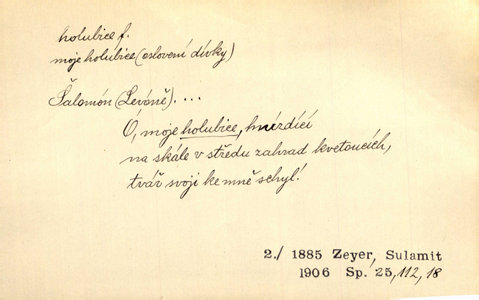 holubice f.
moje holubice (oslovení dívky)
Šalamón (Levóně). ...
Ó, moje holubice, hnízdící
na skále v středu zahrad kvetoucích,
tvář svoji ke mně schyl!
2./ 1885 Zeyer, Sulamit
1906 Sp. 25, 112, 18